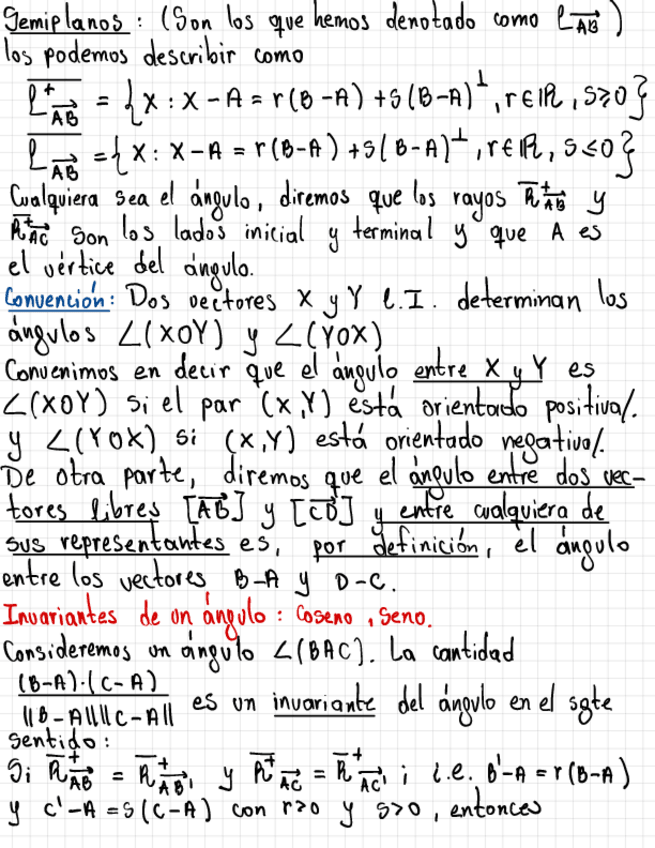 Semiplanos : (Son los que hemos denotado como ℓ_{\overrightarrow{AB}})
los podemos describir como
\overline{ℓ^+_{\overrightarrow{AB}}} = { X : X - A = r(B-A) + S(B-A)^⊥, r∈ℝ, S≥0 }
\overline{ℓ_{\overrightarrow{AB}}} = { X : X - A = r(B-A) + S(B-A)^⊥, r∈ℝ, S≤0 }
Cualquiera sea el ángulo, diremos que los rayos \overline{R}^+_{\overrightarrow{AB}} y
\overline{R}^+_{\overrightarrow{AC}} Son los lados inicial y terminal y que A es
el vértice del ángulo.
Convención: Dos vectores X y Y l.I. determinan los
ángulos ∠(XOY) y ∠(YOX)
Convenimos en decir que el ángulo entre X y Y es
∠(XOY) si el par (X,Y) está orientado positiva/.
y ∠(YOX) si (X,Y) está orientado negativa/.
De otra parte, diremos que el ángulo entre dos vec-
tores libres [\overrightarrow{AB}] y [\overrightarrow{CD}] y entre cualquiera de
sus representantes es, por definición, el ángulo
entre los vectores B-A y D-C.
Invariantes de un ángulo : Coseno, Seno.
Consideremos un ángulo ∠(BAC). La cantidad
\frac{(B-A)·(C-A)}{||B-A|| ||C-A||} es un invariante del ángulo en el sgte
sentido:
Si \overline{R}^+_{\overrightarrow{AB}} = \overline{R}^+_{\overrightarrow{AB'}} y \overline{R}^+_{\overrightarrow{AC}} = \overline{R}^+_{\overrightarrow{AC'}} ; i.e. B'-A = r(B-A)
y C'-A = S(C-A) con r>0 y S>0, entonces